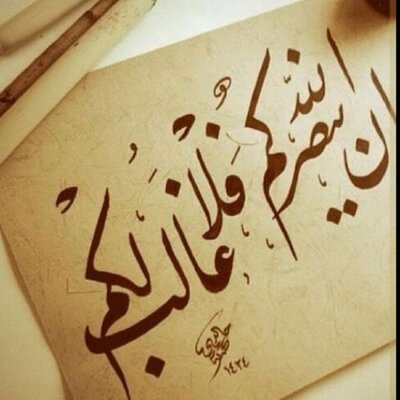 ان ينصركم الله فلا غالب لكم
١٤٢٤